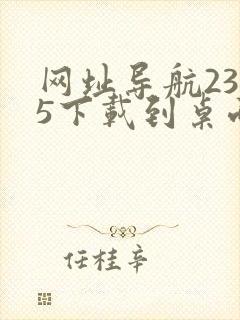 网址导航23
5下载到桌
任桂辛